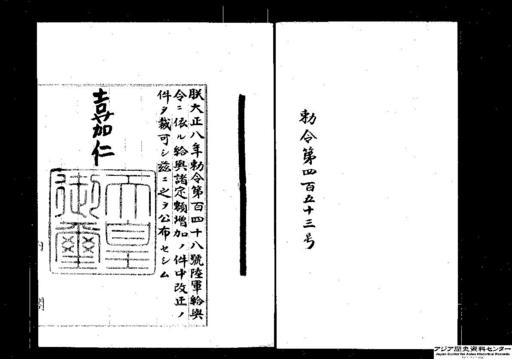 勅令第四百五十三号
朕大正八年勅令第百四十八號陸軍給與
令ニ依ル給與諸定額增加ノ件中改正ノ
件ヲ裁可シ茲ニ之ヲ公布セシム
嘉仁
天皇
御璽
内
閣
アジア歴史資料センター
Japan Center for Asian Historical Records